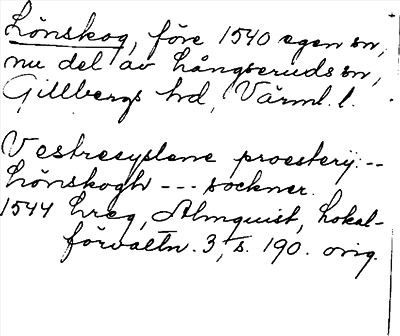 Lönskog, före 1540 egen sn,
nu del av Långseruds sn,
Gillbergs hd, Värml. l.
Vestresyslene proestery: --
Lönskogh --- sockner.
1544 Lreg, Almquist, Lokal-
förvaltn. 3, s. 190. orig.